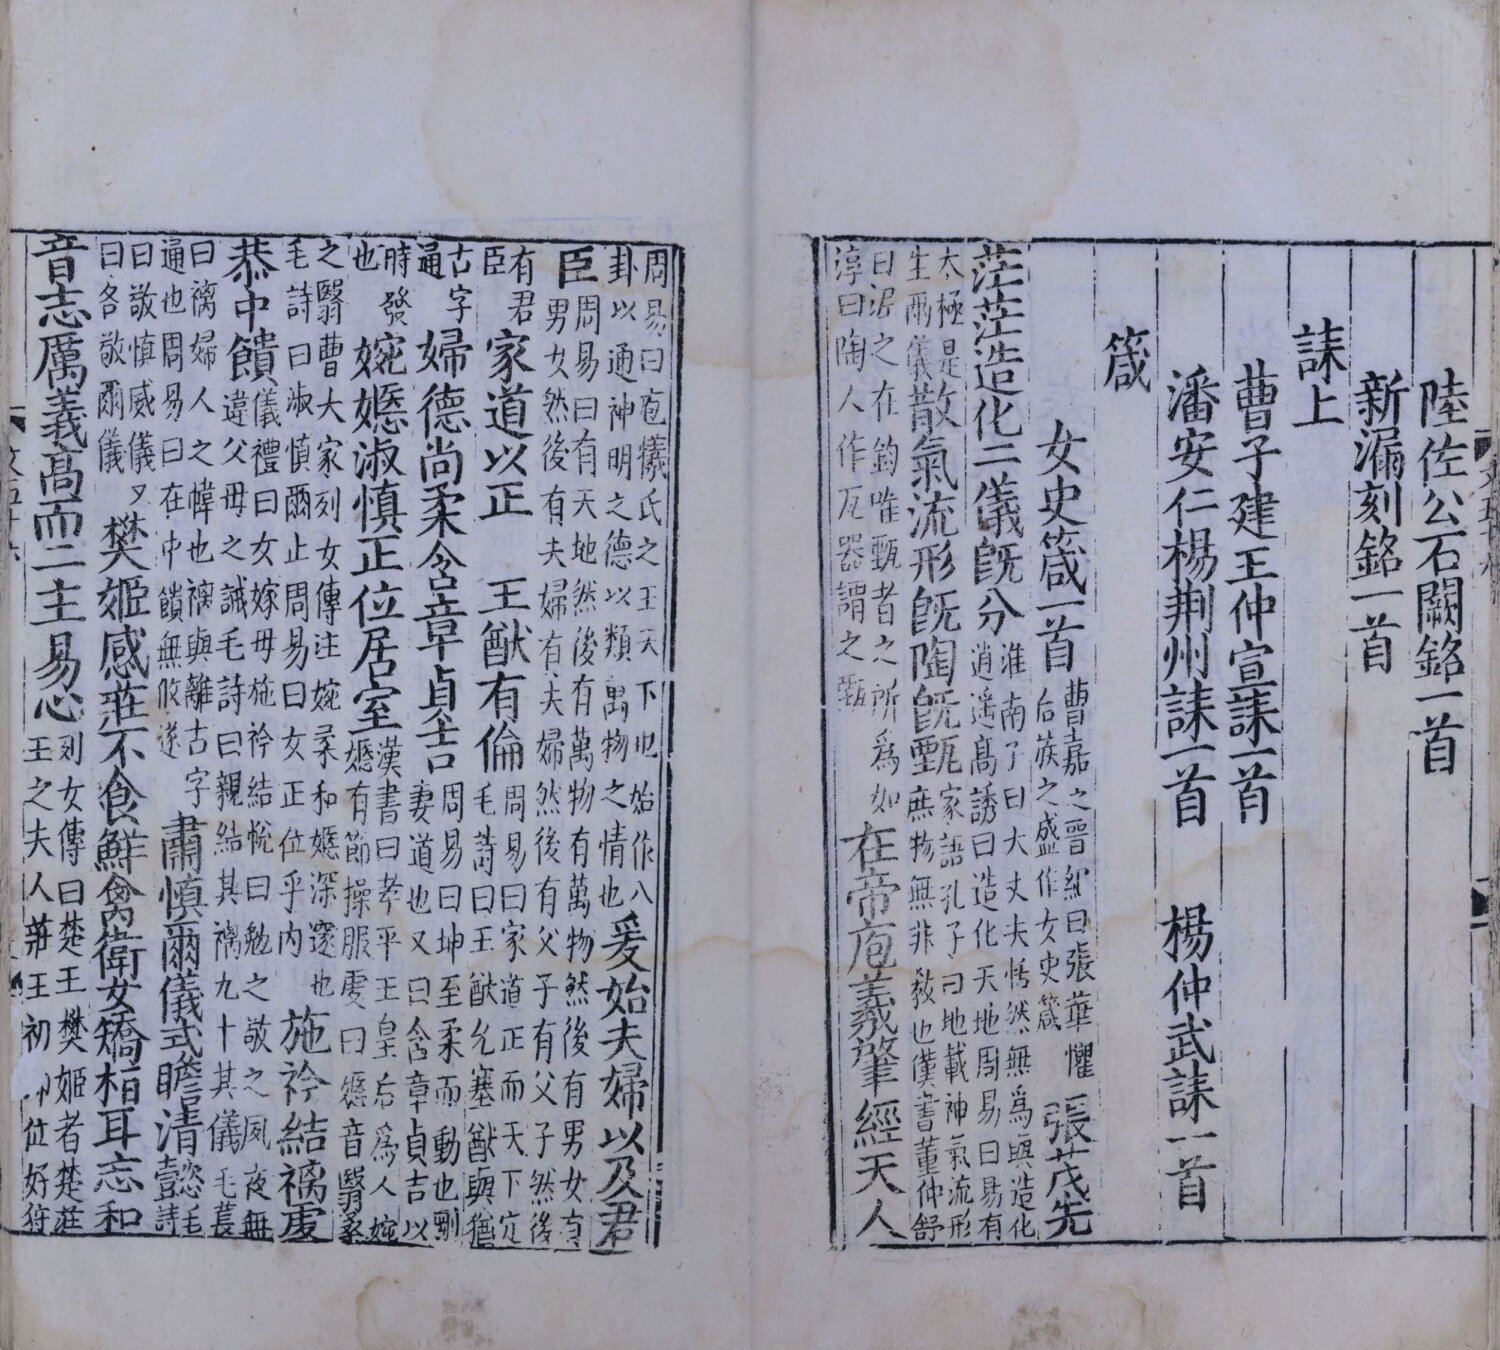 陸佐公石闕銘一首
新漏刻銘一首
誄上
曹子建王仲宣誄一首
潘安仁楊荆州誄一首　楊仲武誄一首
箴
女史箴一首 曹嘉之晉紀曰張華懼后族之盛作女史箴 張茂先
茫茫造化二儀旣分 淮南子曰大丈夫恬然無爲與造化逍遥高誘曰造化天地周易曰易有
太極是生兩儀 散氣流形旣陶旣甄 家語孔子曰地載神氣流形庶物無非敎也漢書董仲舒
曰泥之在鈞唯甄者之所爲如淳曰陶人作瓦器謂之甄 在帝庖羲肇經天人
周易曰庖犧氏之王天下也始作八卦以通神明之德以類萬物之情也 爰始夫婦以及君
臣 周易曰有天地然後有萬物有萬物然後有男女有男女然後有夫婦有夫婦然後有父子有父子然後
有君臣 家道以正　王猷有倫 周易曰家道正而天下定毛詩曰王猷允塞猷與猶
古字通 婦德尚柔含章貞吉 周易曰坤至柔而動也剛妻道也又曰含章貞吉以
時發也 婉嫕淑慎正位居室 漢書曰孝平王皇后爲人婉嫕有節操服虔曰嫕音翳桑
之翳曹大家列女傳注婉柔和嫕深邃也毛詩曰淑慎爾止周易曰女正位乎内 施衿結褵虔
恭中饋 儀禮曰女嫁母施衿結帨曰勉之敬之夙夜無違父母之誡毛詩曰親結其褵九十其儀毛萇
曰褵婦人之幃也褵與離古字通也周易曰在中饋無攸遂 肅慎爾儀式瞻清懿 毛詩
曰敬慎威儀又曰各敬爾儀 樊姬感莊不食鮮禽衛女矯桓耳忘和
音志厲義高而二主易心 列女傳曰楚王樊姬者楚莊王之夫人莊王初卽位好狩